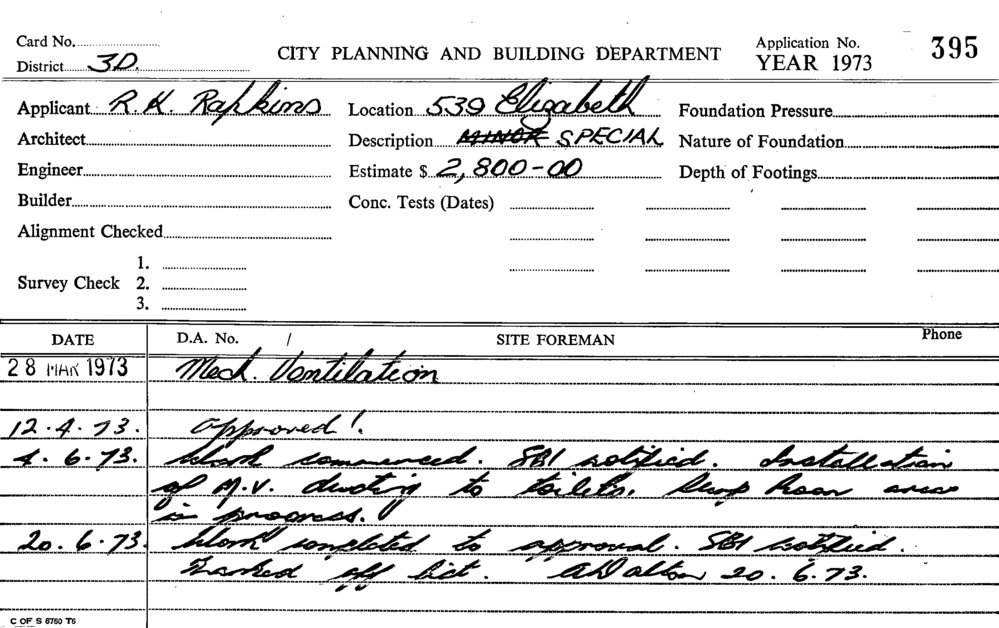 Card No.
District 3D.
CITY PLANNING AND BUILDING DEPARTMENT
Application No. 395
YEAR 1973
Applicant R.K. Rapkins
Location 539 Elizabeth
Foundation Pressure
Architect
Description MINOR SPECIAL
Nature of Foundation
Engineer
Estimate $ 2,800-00
Depth of Footings
Builder
Conc. Tests (Dates)
Alignment Checked
Survey Check
1.
2.
3.
DATE
D.A. No. /
SITE FOREMAN
Phone
28 MAR 1973 Mech. Ventilation
12.4.73. Approved!.
4.6.73. Work commenced. SBI notified. Installation
of M.V. ducting to toilets. Room areas
in progress.
20.6.73. Work completed to approval. SBI notified.
Marked off list. A Dalton 20.6.73.
C OF S 6760 T6